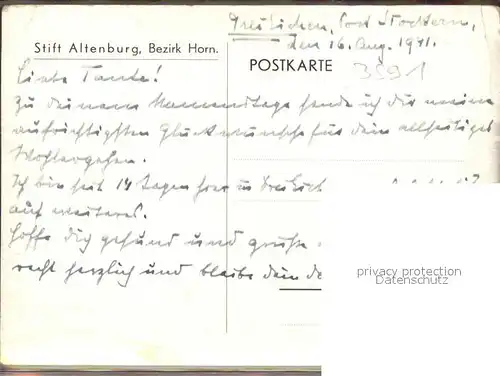 Dreieichen, Post Stockern,
den 16. Aug. 1941.
Stift Altenburg, Bezirk Horn.
POSTKARTE
3591
Liebe Tante!
Zu deinem Namenstage sende ich dir meine
aufrichtigsten Glückwünsche für dein allseitiges
Wohlergehen.
Ich bin seit 14 Tagen hier in
auf weiteres.
Hoffe dich gesund und grüße
recht herzlich und bleibe dein
privacy protection
Datenschutz